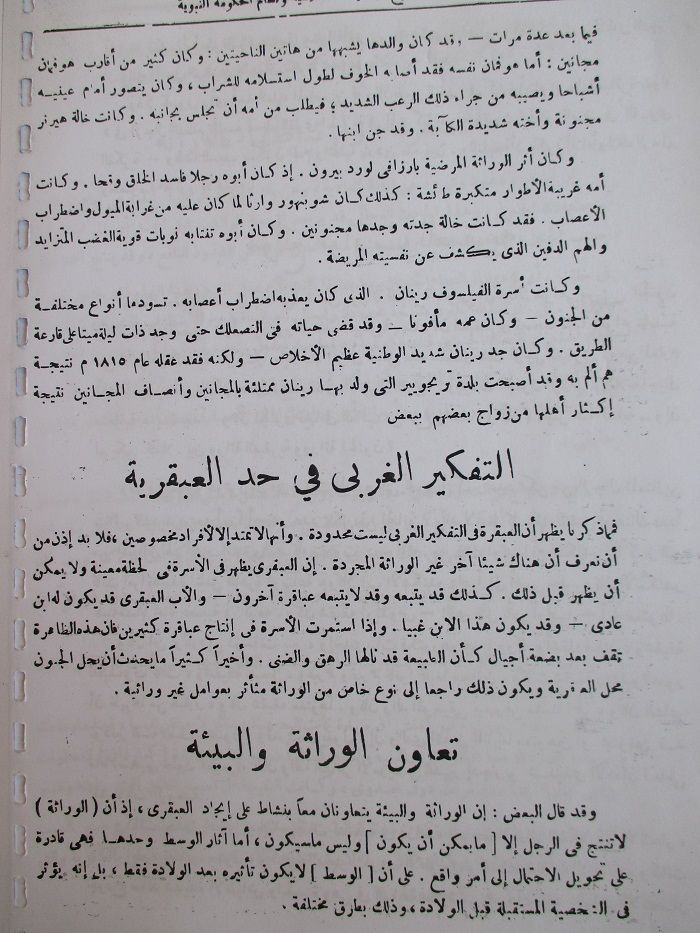 والنظام الحكومة النبوية
فيما بعد عدة مرات — وقد كان والدها يشبهها من هاتين الناحيتين : وكان كثير من أقارب هوفمان
مجانين : أما هوفمان نفسه فقد أصابه الخوف لطول استسلامه للشراب ، وكان يتصور أمام عينيه
أشباحا ويصيبه من جراء ذلك الرعب الشديد ؛ فيطلب من أمه أن تجلس بجانبه . وكانت خالة هيرنر
مجنونة وأخته شديدة الكآبة . وقد جن ابنها .
وكان أثر الوراثة المرضية بارزا فى لورد بيرون . إذ كان أبوه رجلا فاسد الخلق وقحا . وكانت
أمه غريبة الأطوار متكبرة طائشة : كذلك كان شوبنهور وارثا لما كان عليه من غرابة الميول واضطراب
الأعصاب . فقد كانت خالة جدته وجدها مجنونين . وكان أبوه تنتابه نوبات قوية الغضب المتزايد
والهم الدفين الذى يكشف عن نفسيته المريضة .
وكانت أسرة الفيلسوف رينان . الذى كان يعذبه اضطراب أعصابه . تسودها أنواع مختلفة
من الجنون — وكان عمه مأفونا — وقد قضى حياته فى التصعلك حتى وجد ذات ليلة ميتا على قارعة
الطريق . وكان جد رينان شديد الوطنية عظيم الأخلاص — ولكنه فقد عقله عام ١٨١٥ م نتيجة
هم ألم به وقد أصبحت بلدة تريجويير التى ولد بها رينان ممتلئة بالمجانين وأنصاف المجانين نتيجة
إكثار أهلها من زواج بعضهم ببعض
التفكير الغربى في حد العبقرية
فما ذكرنا يظهر أن العبقرة فى التفكير الغربى ليست محدودة . وأنها لا تمتد إلا لأفراد مخصوصين ، فلا بد إذن من
أن نعرف أن هناك شيئا آخر غير الوراثة المجردة . إن العبقرى يظهر فى الأسرة فى لحظة معينة ولا يمكن
أن يظهر قبل ذلك . كذلك قد يتبعه وقد لا يتبعه عباقرة آخرون — والأب العبقرى قد يكون له ابن
عادى — وقد يكون هذا الابن غبيا . وإذا استمرت الأسرة فى إنتاج عباقرة كثيرين فان هذه الظاهرة
تقف بعد بضعة أجيال كأن الطبيعة قد نالها الرهق والضنى . وأخيراً كثيراً ما يحدث أن يحل الجنون
محل العبقرية ويكون ذلك راجعا إلى نوع خاص من الوراثة متأثر بعوامل غير وراثية .
تعاون الوراثة والبيئة
وقد قال البعض : إن الوراثة والبيئة يتعاونان معاً بنشاط على إيجاد العبقرى ، إذ أن ( الوراثة )
لا تنتج فى الرجل إلا [ ما يمكن أن يكون ] وليس ما سيكون ، أما آثار الوسط وحدها فهى قادرة
على تحويل الاحتمال إلى أمر واقع . على أن [ الوسط ] لا يكون تأثيره بعد الولادة فقط ، بل إنه يؤثر
فى الشخصية المستقبلة قبل الولادة ، وذلك بطرق مختلفة .